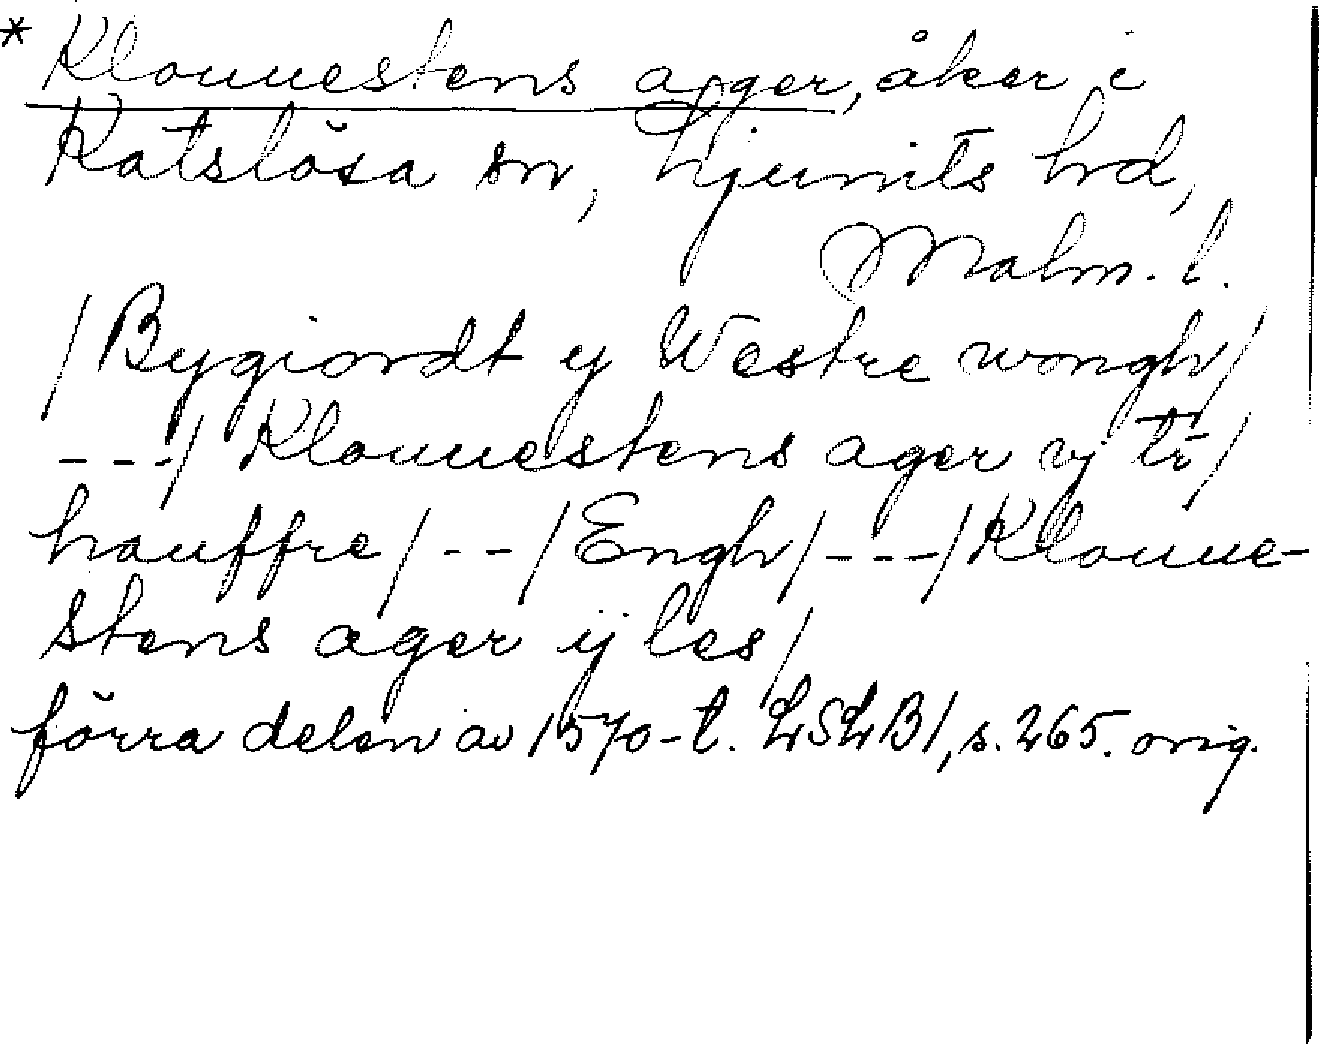 * Klouuestens ager, åker i
Katslösa sn, Ljunits hd,
Malm. l.
/Bygiordt y Westre wongh/
---/ Klouuestens ager vj tr̄/
hauffre/--/Engh/---/Kloune-
stens ager ij les/
förra delen av 1570-t. LSLB1, s. 265. orig.